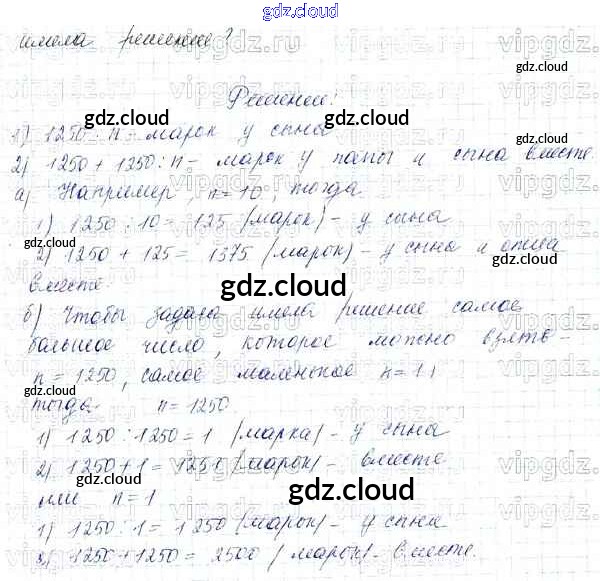 gdz.cloud
имела решение?
Решение:
gdz.cloud gdz.cloud
1) 1250 : n – марок у сына
2) 1250 + 1250 : n – марок у папы и сына вместе.
а) Например, n = 10, тогда
1) 1250 : 10 = 125 (марок) – у сына
gdz.cloud gdz.cloud
2) 1250 + 125 = 1375 (марок) – у сына и отца
вместе.
gdz.cloud
б) Чтобы задача имела решение самое
большое число, которое можно взять –
n = 1250, самое маленькое n = 1,
gdz.cloud gdz.cloud
тогда n = 1250
1) 1250 : 1250 = 1 (марка) – у сына
2) 1250 + 1 = 1251 (марок) – вместе
или n = 1
gdz.cloud gdz.cloud
1) 1250 : 1 = 1250 (марок) – у сына
2) 1250 + 1250 = 2500 (марок) – вместе.
gdz.cloud